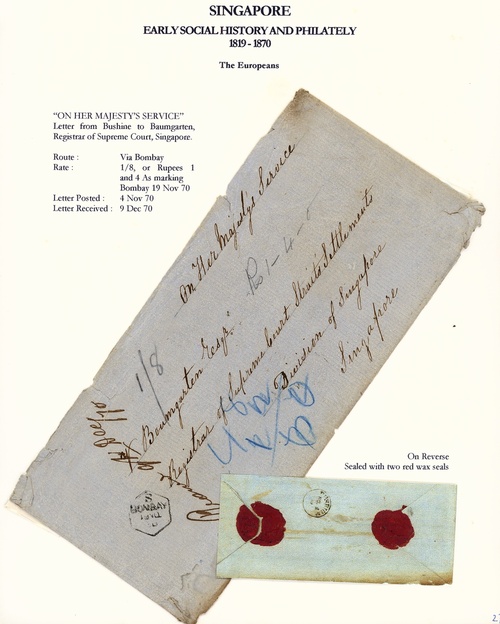 SINGAPORE
EARLY SOCIAL HISTORY AND PHILATELY
1819 - 1870
The Europeans
"ON HER MAJESTY'S SERVICE"
Letter from Bushine to Baumgarten,
Registrar of Supreme Court, Singapore.
Route : Via Bombay
Rate : 1/8, or Rupees 1
and 4 As marking
Bombay 19 Nov 70
Letter Posted : 4 Nov 70
Letter Received : 9 Dec 70
On Her Majestys Service
Rs 1-4-
1/8
Baumgarten Esqr.
Registrar of Supreme Court Straits Settlements
Division of Singapore
Singapore
BOMBAY
On Reverse
Sealed with two red wax seals